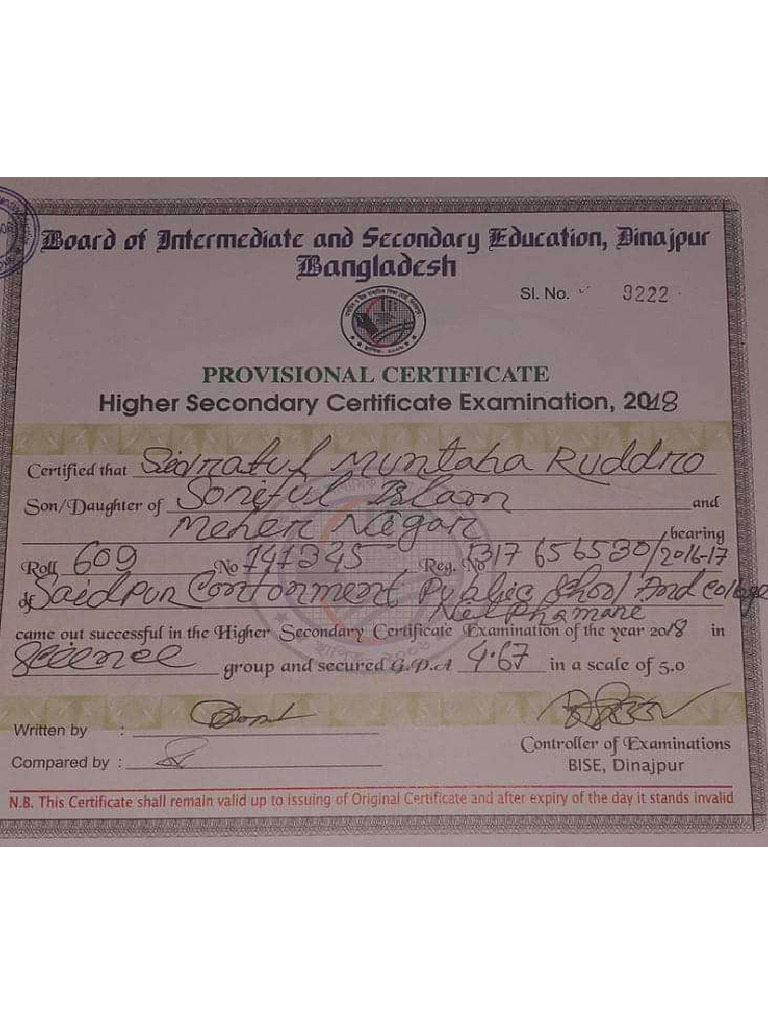 Board of Intermediate and Secondary Education, Dinajpur
Bangladesh
Sl. No. 9222
PROVISIONAL CERTIFICATE
Higher Secondary Certificate Examination, 2018
Certified that Sidratul Muntaha Ruddro
Son/Daughter of Soriful Islam and
Meher Negar bearing
Roll 609 No 141345 Reg. No 1317656530/2016-17
of Saidpur Contonment Public School And College
Nelphamare
came out successful in the Higher Secondary Certificate Examination of the year 2018 in
Science group and secured G.P.A 4.67 in a scale of 5.0
Written by :
Controller of Examinations
Compared by :
BISE, Dinajpur
N.B. This Certificate shall remain valid up to issuing of Original Certificate and after expiry of the day it stands invalid